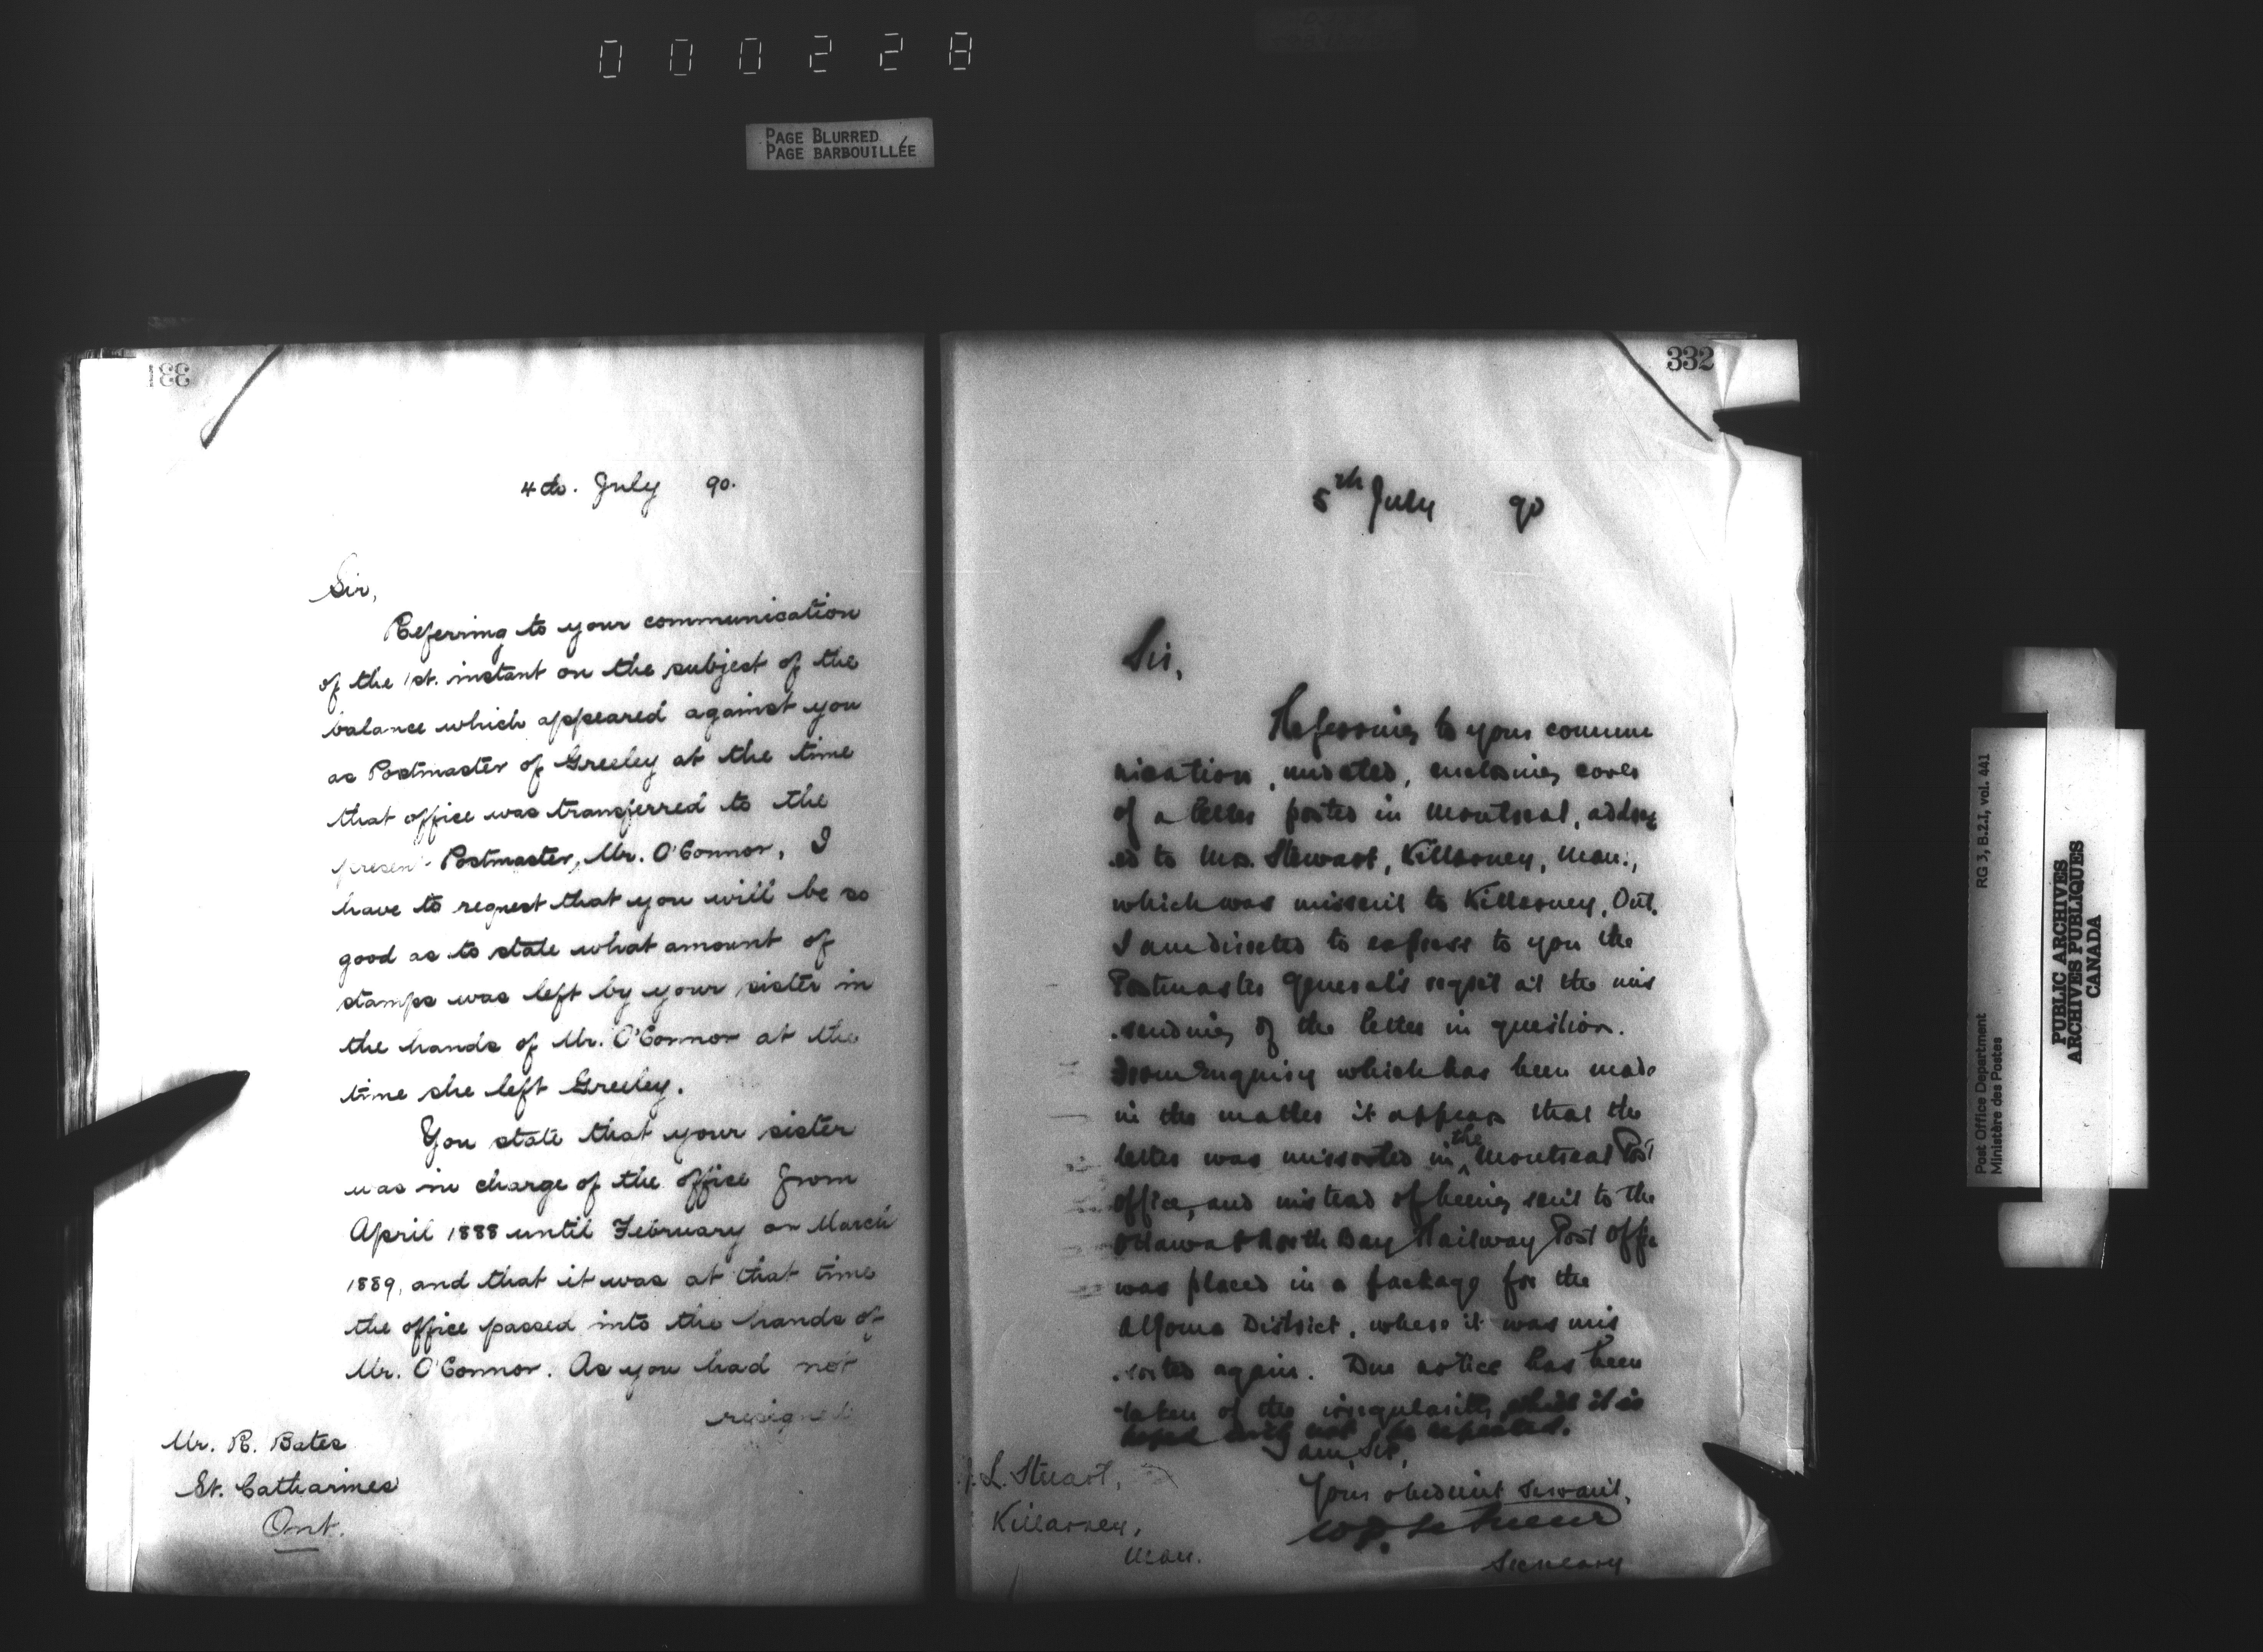 000228
PAGE BLURRED
PAGE BARBOUILLÉE
331
4th. July 90.
Sir,
Referring to your communication
of the 1st. instant on the subject of the
balance which appeared against you
as Postmaster of Greeley at the time
that office was transferred to the
present Postmaster, Mr. O'Connor, I
have to request that you will be so
good as to state what amount of
stamps was left by your sister in
the hands of Mr. O'Connor at the
time she left Greeley.
You state that your sister
was in charge of the office from
April 1888 until February or March
1889, and that it was at that time
the office passed into the hands of
Mr. O'Connor. As you had not
resigned
Mr. R. Bates
St. Catharines
Ont.
332
5th July 90
Sir,
Referring to your commu
nication, undated, enclosing cover
of a letter posted in Montreal, address
ed to Mrs. Stewart, Killarney, Man.,
which was missent to Killarney, Ont.
I am directed to express to you the
Postmaster General's regret at the mis
sending of the letter in question.
From enquiry which has been made
in the matter it appears that the
letter was missorted in the Montreal Post
office, and instead of being sent to the
Ottawa & North Bay Railway Post Office
was placed in a package for the
Algoma District, where it was mis
sorted again. Due notice has been
taken of the irregularity, which it is
hoped will not be repeated.
I am, Sir,
Your obedient servant,
W.D. LeSueur
Secretary
L. Stuart,
Killarney,
Man.
Post Office Department
Ministère des Postes
RG 3, B.2.1, vol. 441
PUBLIC ARCHIVES
ARCHIVES PUBLIQUES
CANADA